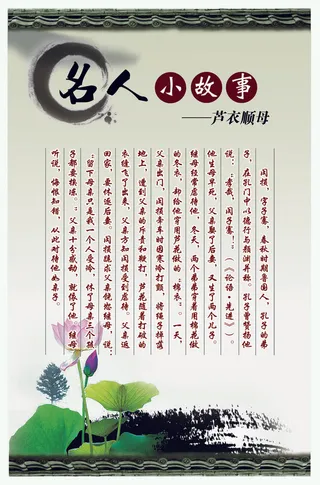 名人小故事
——芦衣顺母
闵损，字子骞，春秋时期鲁国人，孔子的弟
子，在孔门中以德行与颜渊并称。孔子曾赞扬他
说：：孝哉，闵子骞！：（《论语·先进》）。
他生母早死，父亲娶了后妻，又生了两个儿子。
继母经常虐待他，冬天，两个弟弟穿着用棉花做
的冬衣，却给他穿用芦花做的：棉衣：。一天，
父亲出门，闵损牵车时因寒冷打颤，将绳子掉落
地上，遭到父亲的斥责和鞭打，芦花随着打破的
衣缝飞了出来，父亲方知闵损受到虐待。父亲返
回家，要休逐后妻。闵损跪求父亲饶恕继母，说：
：留下母亲只是我一个人受冷，休了母亲三个孩
子都要挨冻。：父亲十分感动，就依了他。继母
听说，悔恨知错，从此对待他如亲子。